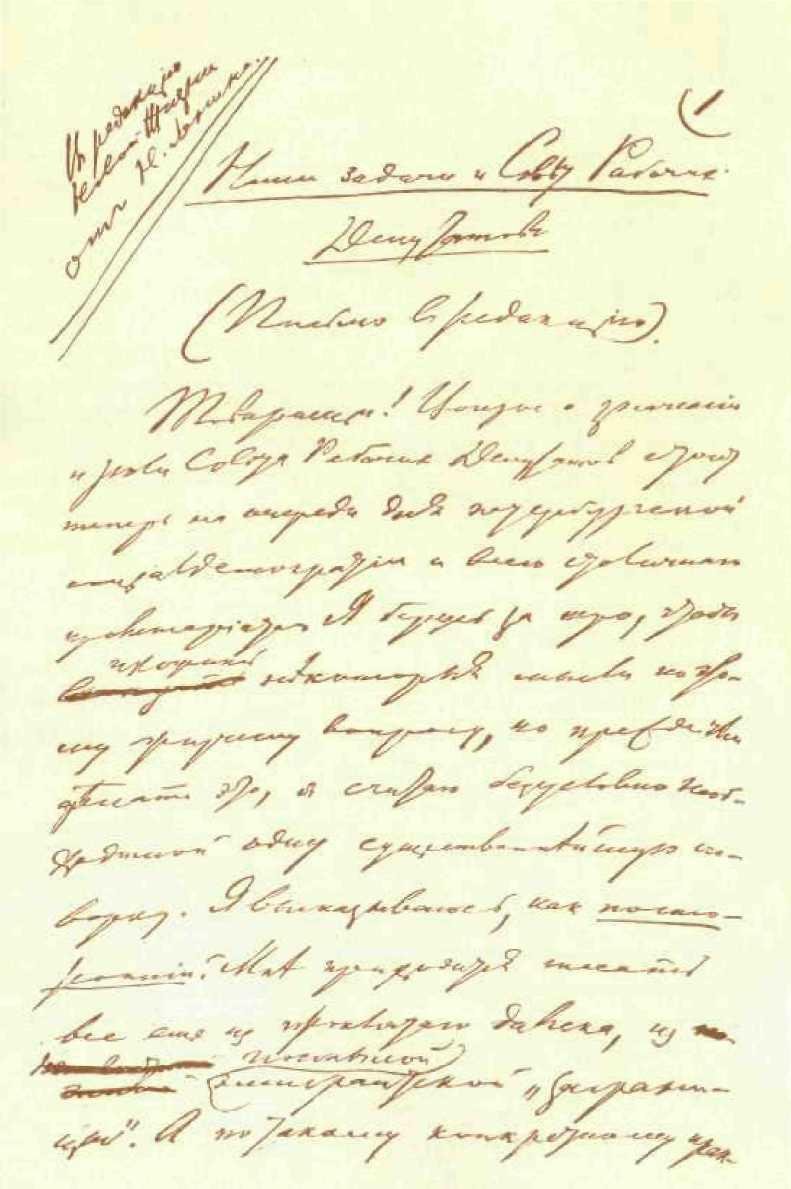 Въ редакцію
Новой Жизни
отъ Н. Ленина.
1
Наши задачи и Совѣт Рабочих
Депутатовъ
(Письмо в редакцію).
Товарищи! Вопрос о значеніи
и роли Совѣта Рабочих Депутатов стоит
теперь на очереди дня петербургской
социалдемократіи и всего столичнаго
пролетаріата. Я берусь за перо, чтобы
изложить
нѣкоторыя мысли по это-
му жгучему вопросу, но прежде чѣм
сдѣлать это, я считаю безусловно необ-
ходимой одну существеннѣйшую ого-
ворку. Я высказываюсь, как посто-
ронній. Мнѣ приходится писать
все еще из проклятаго далека, из
постылой
эмигрантской „заграни-
цы". А по такому конкретному прак-